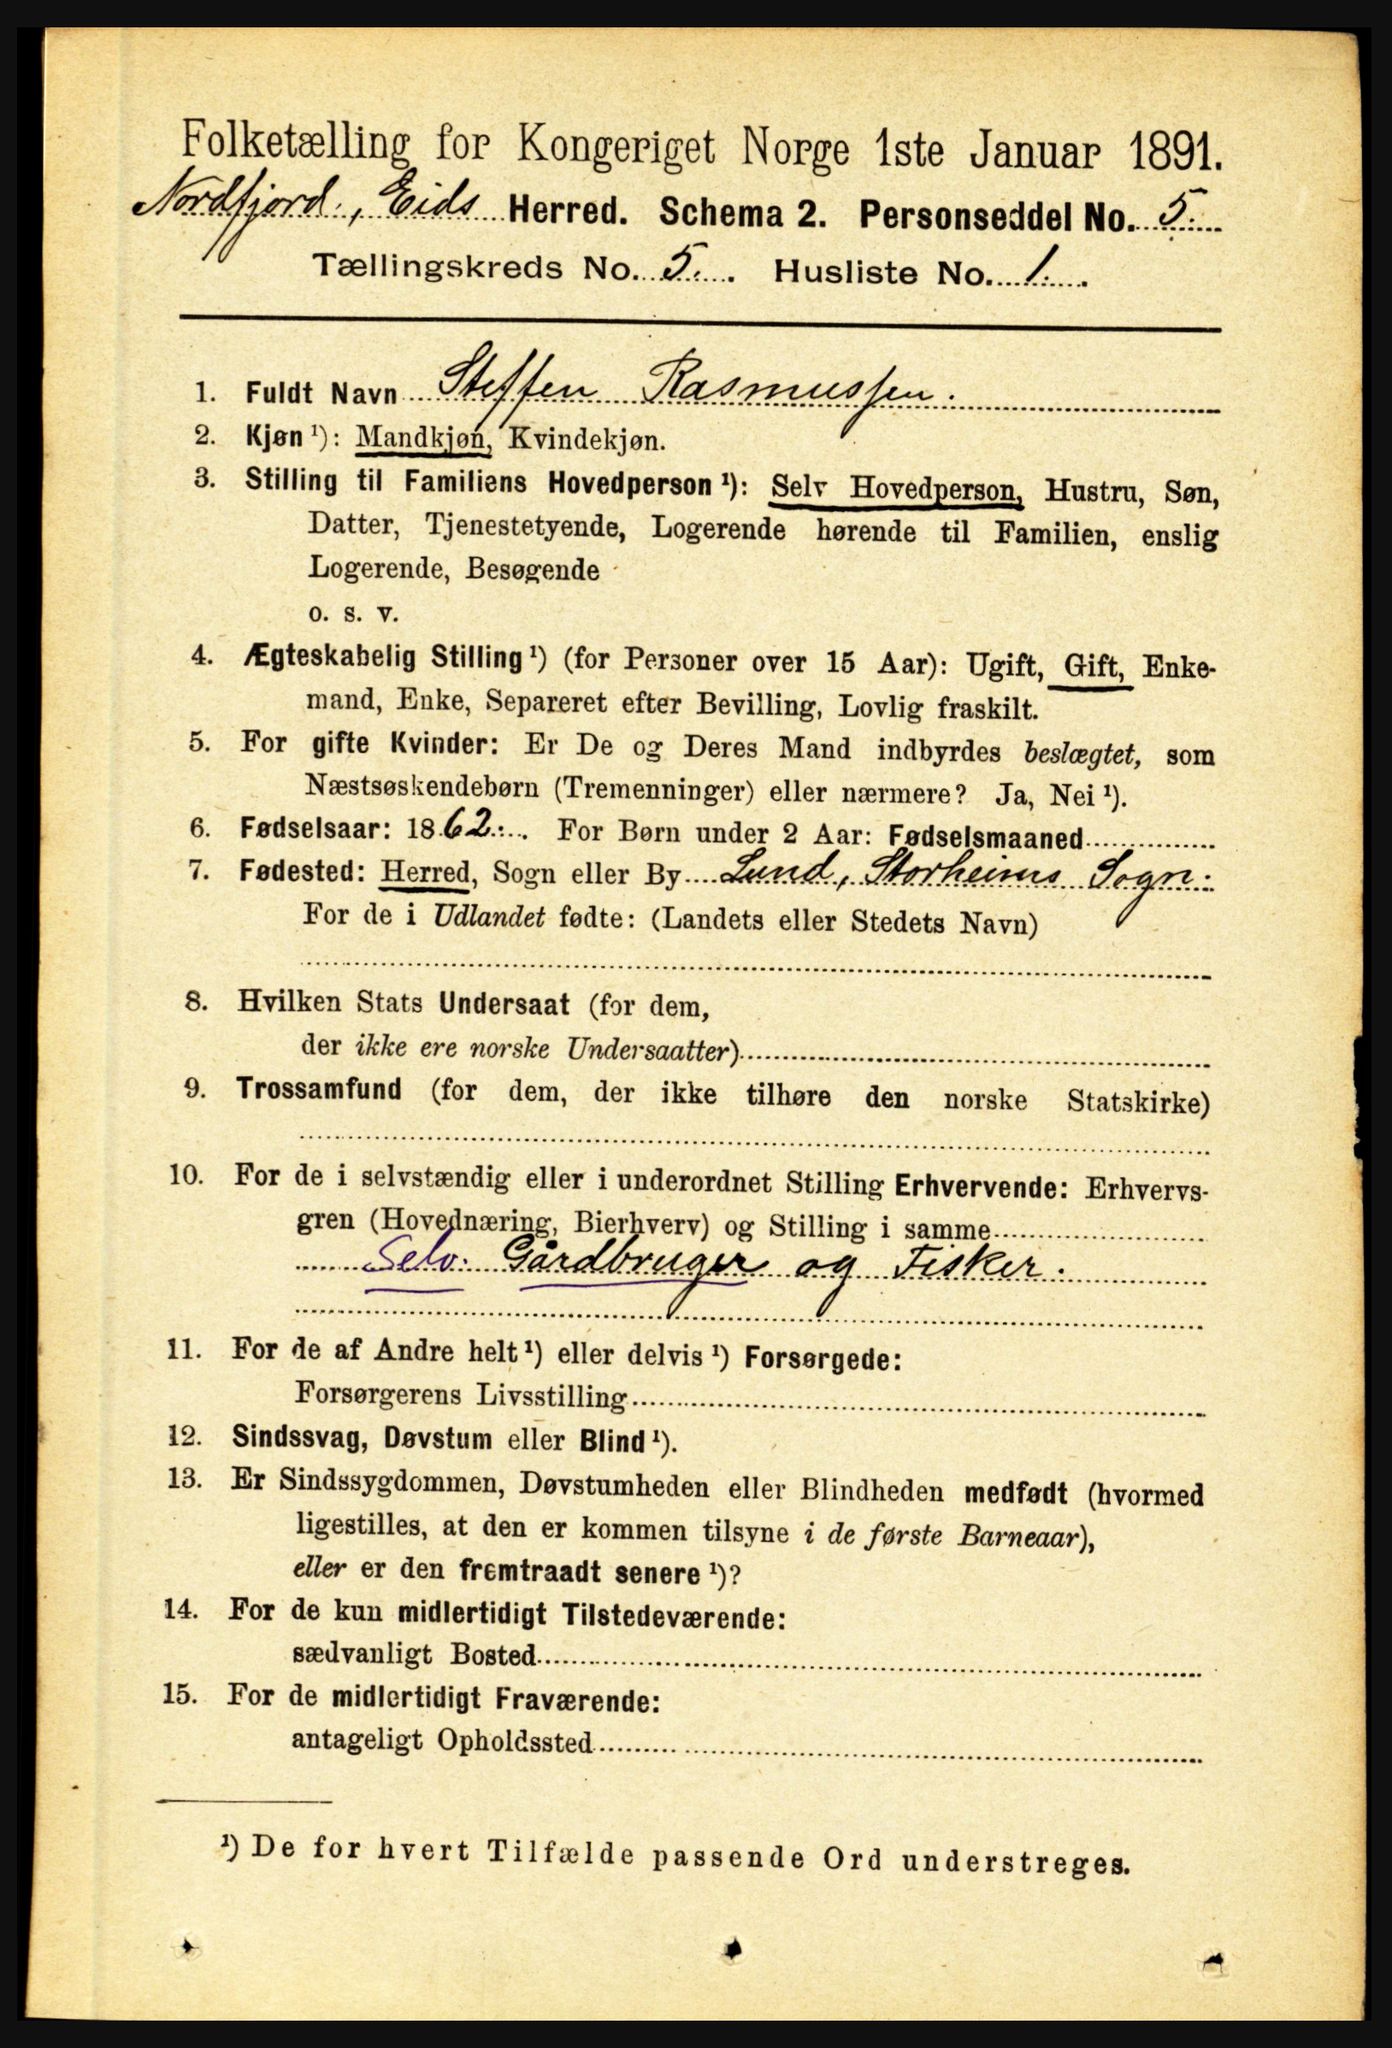 Folketælling for Kongeriget Norge 1ste Januar 1891.
Nordfjord, Eids Herred. Schema 2. Personseddel No. 5.
Tællingskreds No. 5. Husliste No. 1.
1. Fuldt Navn Steffen Rasmussen.
2. Kjøn¹): Mandkjøn, Kvindekjøn.
3. Stilling til Familiens Hovedperson¹): Selv Hovedperson, Hustru, Søn,
Datter, Tjenestetyende, Logerende hørende til Familien, enslig
Logerende, Besøgende
o. s. v.
4. Ægteskabelig Stilling¹) (for Personer over 15 Aar): Ugift, Gift, Enke-
mand, Enke, Separeret efter Bevilling, Lovlig fraskilt.
5. For gifte Kvinder: Er De og Deres Mand indbyrdes beslægtet, som
Næstsøskendebørn (Tremenninger) eller nærmere? Ja, Nei¹).
6. Fødselsaar: 1862. For Børn under 2 Aar: Fødselsmaaned
7. Fødested: Herred, Sogn eller By Lund, Storheims Sogn.
For de i Udlandet fødte: (Landets eller Stedets Navn)
8. Hvilken Stats Undersaat (for dem,
der ikke ere norske Undersaatter)
9. Trossamfund (for dem, der ikke tilhøre den norske Statskirke)
10. For de i selvstændig eller i underordnet Stilling Erhvervende: Erhvervs-
gren (Hovednæring, Bierhverv) og Stilling i samme
Selv. Gårdbruger og Fisker.
11. For de af Andre helt¹) eller delvis¹) Forsørgede:
Forsørgerens Livsstilling
12. Sindssvag, Døvstum eller Blind¹).
13. Er Sindssygdommen, Døvstumheden eller Blindheden medfødt (hvormed
ligestilles, at den er kommen tilsyne i de første Barneaar),
eller er den fremtraadt senere¹)?
14. For de kun midlertidigt Tilstedeværende:
sædvanligt Bosted
15. For de midlertidigt Fraværende:
antageligt Opholdssted
¹) De for hvert Tilfælde passende Ord understreges.